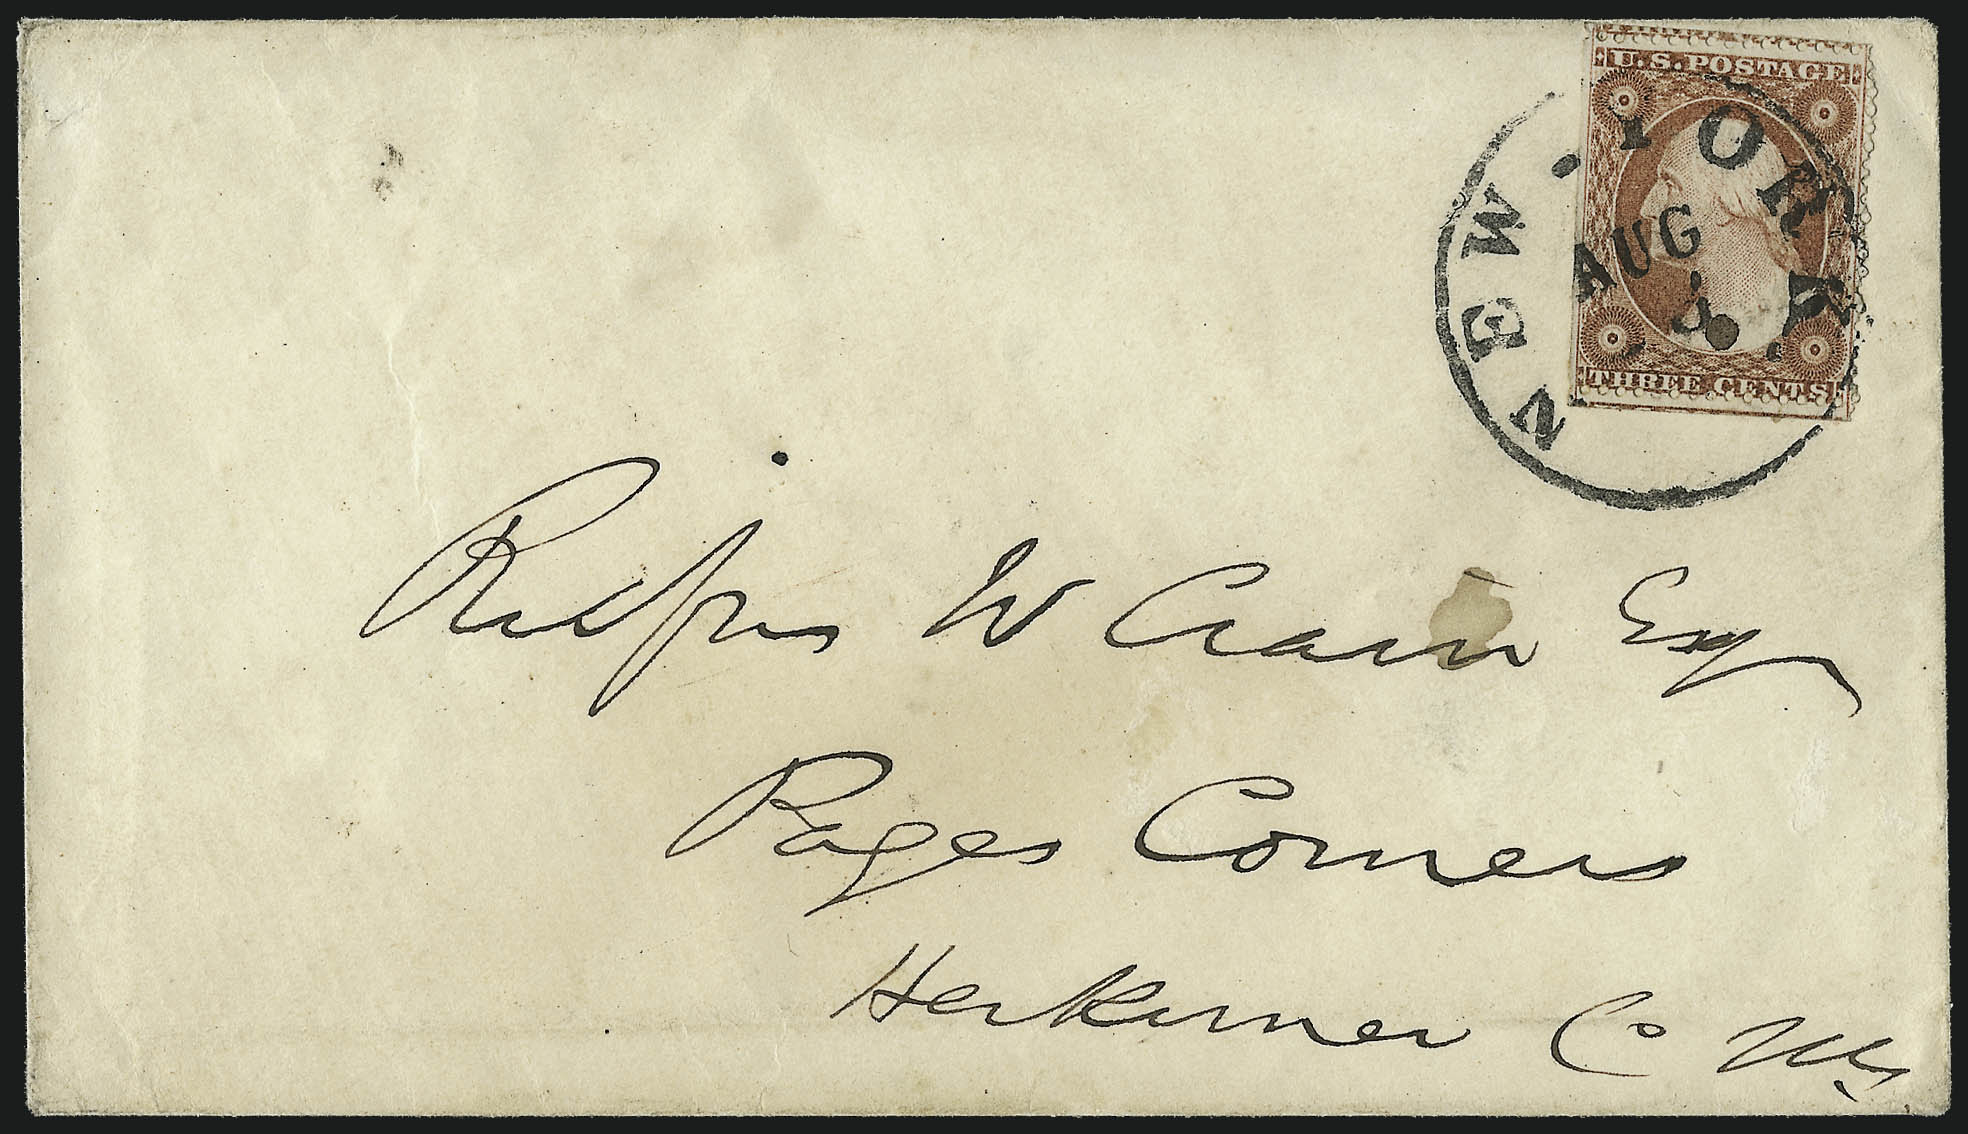 U.S. POSTAGE
NEW-YORK
AUG
THREE CENTS
Rufus W Crain Esq
Pages Corners
Herkimer Co NY